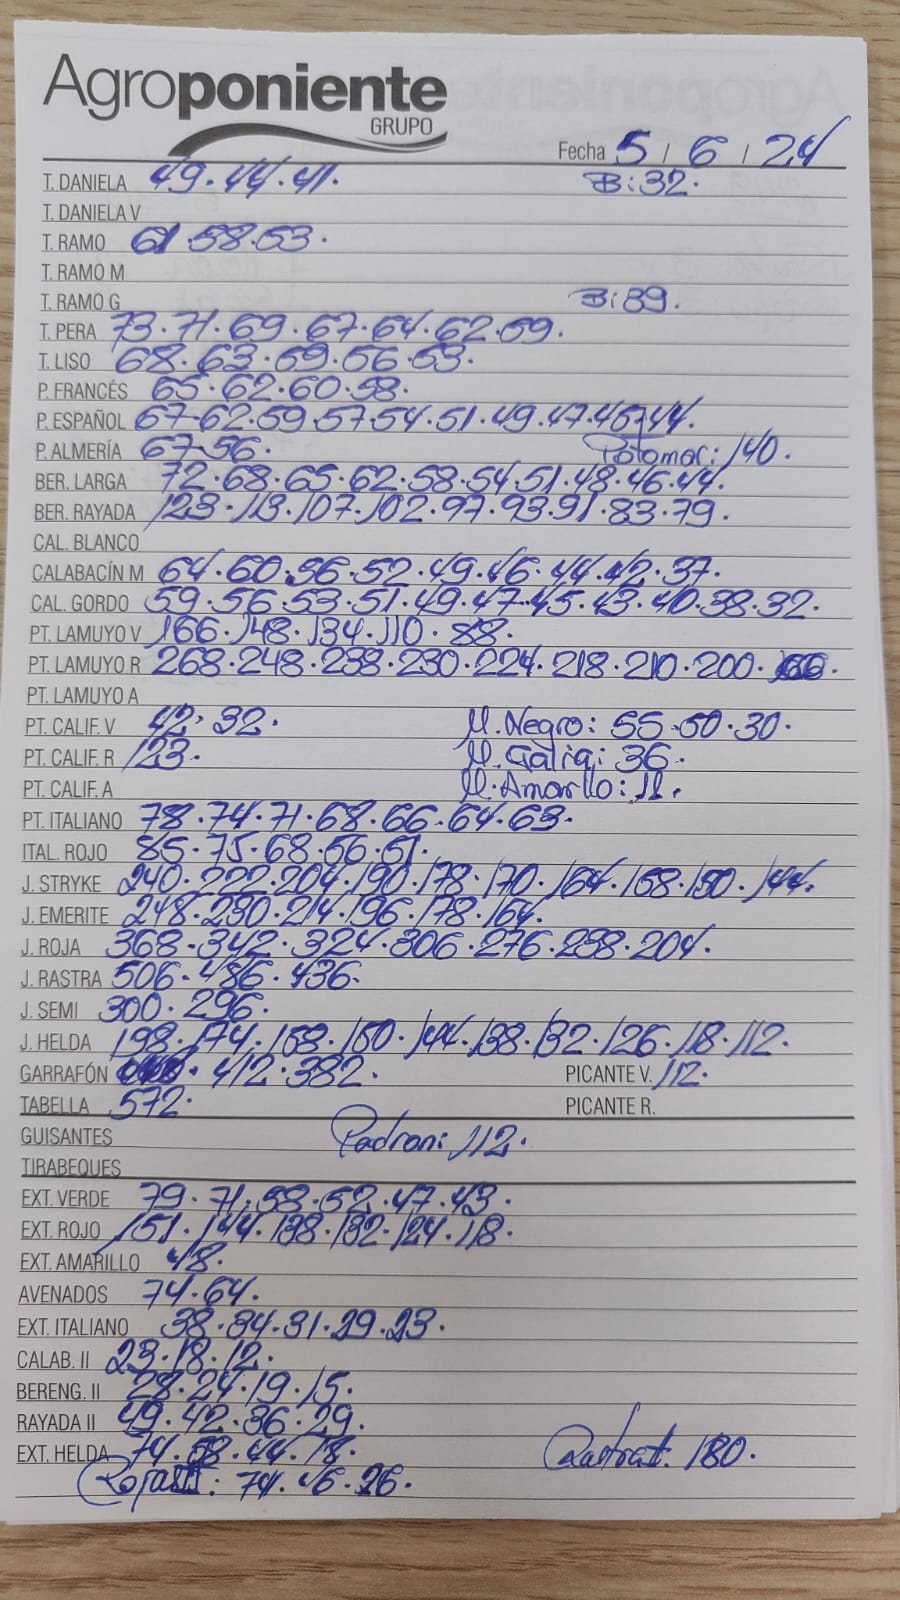 Agroponiente
GRUPO
Fecha 5 / 6 / 24
T. DANIELA 49.44.41. B:32.
T. DANELA V
T. RAMO 61.58.53.
T. RAMO M
T. RAMO G B:39.
T. PERA 73.71.69.67.64.62.59.
T. LISO 68.63.59.56.53.
P. FRANCÉS 65.62.60.58.
P. ESPAÑOL 67.62.59.57.54.51.49.47.45.44.
P. ALMERÍA 67.56. Potomac: 140.
BER. LARGA 72.68.65.62.58.54.51.48.46.44.
BER. RAYADA 123.113.107.102.97.93.91.83.79.
CAL. BLANCO
CALABACÍN M 64.60.56.52.49.46.44.42.37.
CAL. GORDO 59.56.53.51.49.47.45.43.40.38.32.
PT. LAMUYO V 166.148.134.110.88.
PT. LAMUYO R 268.248.238.230.224.218.210.200.
PT. LAMUYO A
PT. CALIF. V 42.32. M. Negro: 55.50.30.
PT. CALIF. R 123. M. Galia: 36.
PT. CALIF. A M. Amarillo: 11.
PT. ITALIANO 78.74.71.68.66.64.63.
ITAL. ROJO 85.75.68.56.51.
J. STRYKE 240.222.204.190.178.170.164.158.150.144.
J. EMERITE 248.230.214.196.178.164.
J. ROJA 368.342.324.306.276.238.204.
J. RASTRA 506.486.436.
J. SEMI 300.296.
J. HELDA 198.174.158.150.144.138.132.126.118.112.
GARRAFÓN 412.382. PICANTE V. 112.
TABELLA 572. PICANTE R.
GUISANTES Padron: 112.
TIRABEQUES
EXT. VERDE 79.71.58.52.47.43.
EXT. ROJO 151.144.138.132.124.118.
EXT. AMARILLO 48.
AVENADOS 74.64.
EXT. ITALIANO 38.34.31.29.23.
CALAB. II 23.18.12.
BERENG. II 28.24.19.15.
RAYADA II 49.42.36.29.
EXT. HELDA 74.58.44.18. 180.
74.46.26.